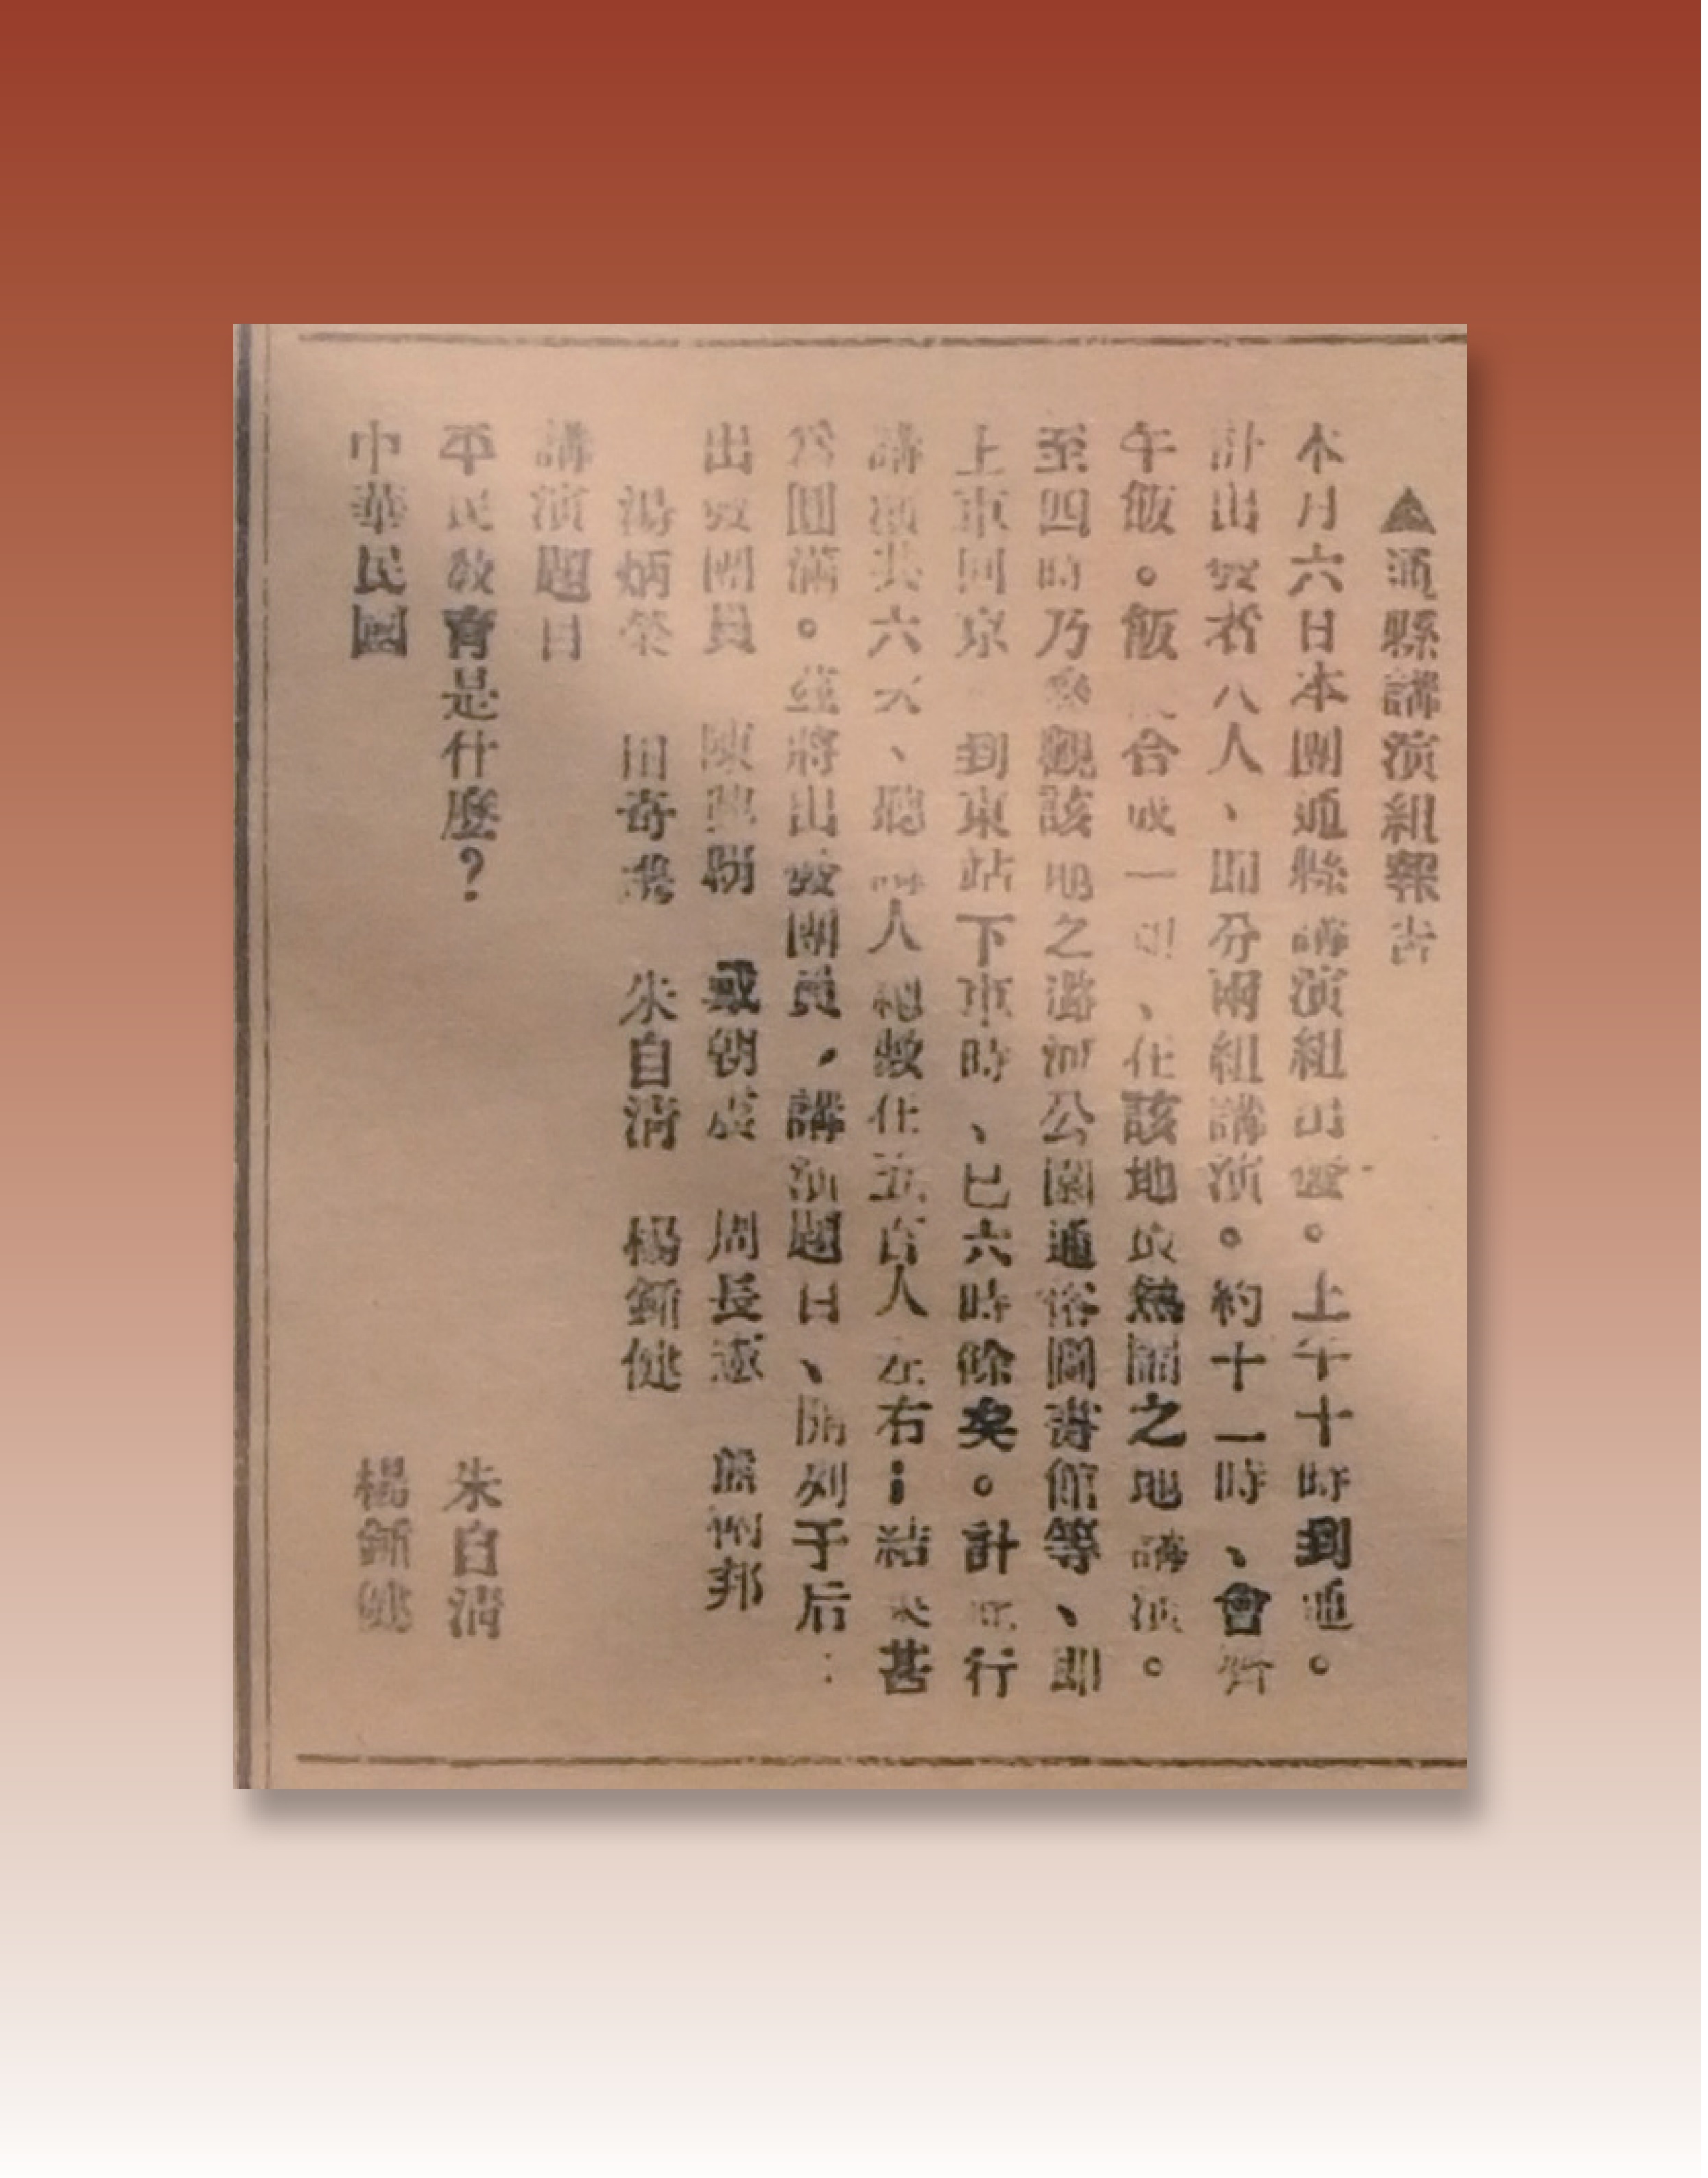 ▲通縣講演組報告
本月六日本團通縣講演組出發。上午十時到通。
計出發者八人、即分兩組講演。約十一時、會齊
午飯。飯後合成一組、在該地最熱鬧之地講演。
至四時乃參觀該地之潞河公園通俗圖書館等、即
上車回京 到東站下車時、已六時餘矣。計此行
講演共六次、聽講人總數在五百人左右；結果甚
爲圓滿。茲將出發團員，講演題目、開列于后：
出發團員 陳興 戴朝 周長憲 邦
湯炳榮 田奇 朱自清 楊鍾健
講演題目
平民敎育是什麽? 朱自清
中華民國 楊鍾健